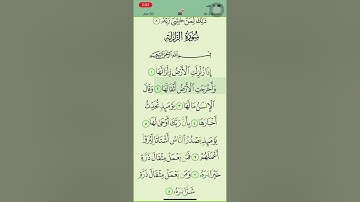 2:02
ذَٰلِكَ لِمَنْ خَشِيَ رَبَّهُۥ ٨
سُورَةُ الزَّلْزَلَةِ
بِسْمِ ٱللَّهِ ٱلرَّحْمَٰنِ ٱلرَّحِيمِ
إِذَا زُلْزِلَتِ ٱلْأَرْضُ زِلْزَالَهَا ١
وَأَخْرَجَتِ ٱلْأَرْضُ أَثْقَالَهَا ٢ وَقَالَ
ٱلْإِنسَٰنُ مَا لَهَا ٣ يَوْمَئِذٍ تُحَدِّثُ
أَخْبَارَهَا ٤ بِأَنَّ رَبَّكَ أَوْحَىٰ لَهَا ٥
يَوْمَئِذٍ يَصْدُرُ ٱلنَّاسُ أَشْتَاتًا لِّيُرَوْا۟
أَعْمَٰلَهُمْ ٦ فَمَن يَعْمَلْ مِثْقَالَ ذَرَّةٍ
خَيْرًا يَرَهُۥ ٧ وَمَن يَعْمَلْ مِثْقَالَ ذَرَّةٍ
شَرًّا يَرَهُۥ ٨